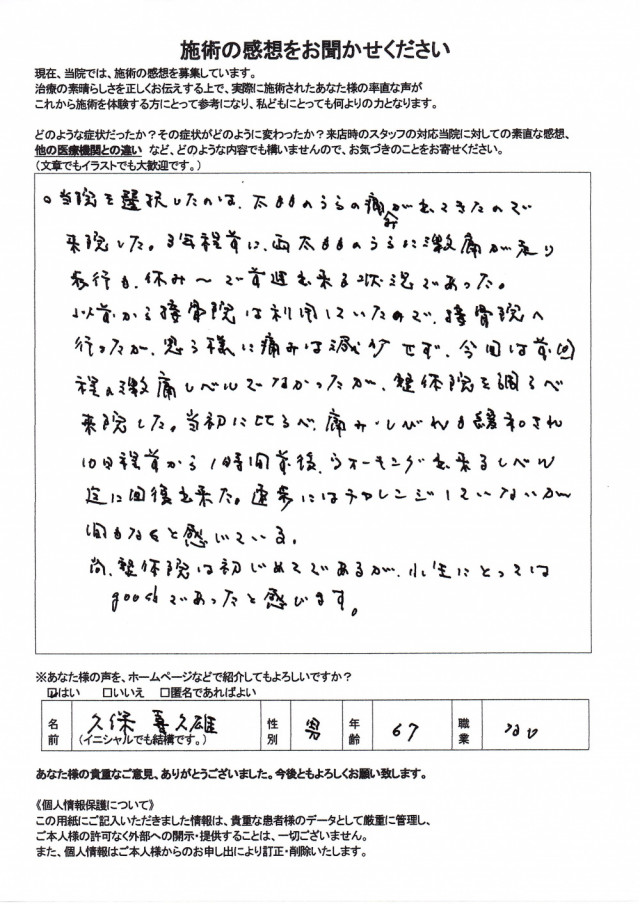 施術の感想をお聞かせください
現在、当院では、施術の感想を募集しています。
治療の素晴らしさを正しくお伝えする上で、実際に施術されたあなた様の率直な声が
これから施術を体験する方にとって参考になり、私どもにとっても何よりの力となります。
どのような症状だったか？その症状がどのように変わったか？来店時のスタッフの対応当院に対しての素直な感想、
他の医療機関との違い など、どのような内容でも構いませんので、お気づきのことをお寄せください。
（文章でもイラストでも大歓迎です。）
○当院を選択したのは、太ももうらの痛みが出てきたので
来院した。5年程前に、両太もものうらに激痛が走り
歩行も、休み〜で前進出来る状況であった。
以前から接骨院は利用していたので、接骨院へ
行ったが、思う様に痛みは減少せず、今回は前回
程の激痛レベルでなかったが、整体院を調べ
来院した。当初に比るべ、痛み・しびれも緩和され
10日程前から1時間前後、ウォーキング出来るレベル
迄に回復出来た。速歩にはチャレンジしていないが
間もなくと感じている。
尚、整体院は初じめてであるが、小生にとっては
goodであったと感じます。
※あなた様の声を、ホームページなどで紹介してもよろしいですか？
☑はい □いいえ □匿名であればよい
名前 久保 喜久雄 性別 男 年齢 67 職業 なし
（イニシャルでも結構です。）
あなた様の貴重なご意見、ありがとうございました。今後ともよろしくお願い致します。
《個人情報保護について》
この用紙にご記入いただきました情報は、貴重な患者様のデータとして厳重に管理し、
ご本人様の許可なく外部への開示・提供することは、一切ございません。
また、個人情報はご本人様からのお申し出により訂正・削除いたします。